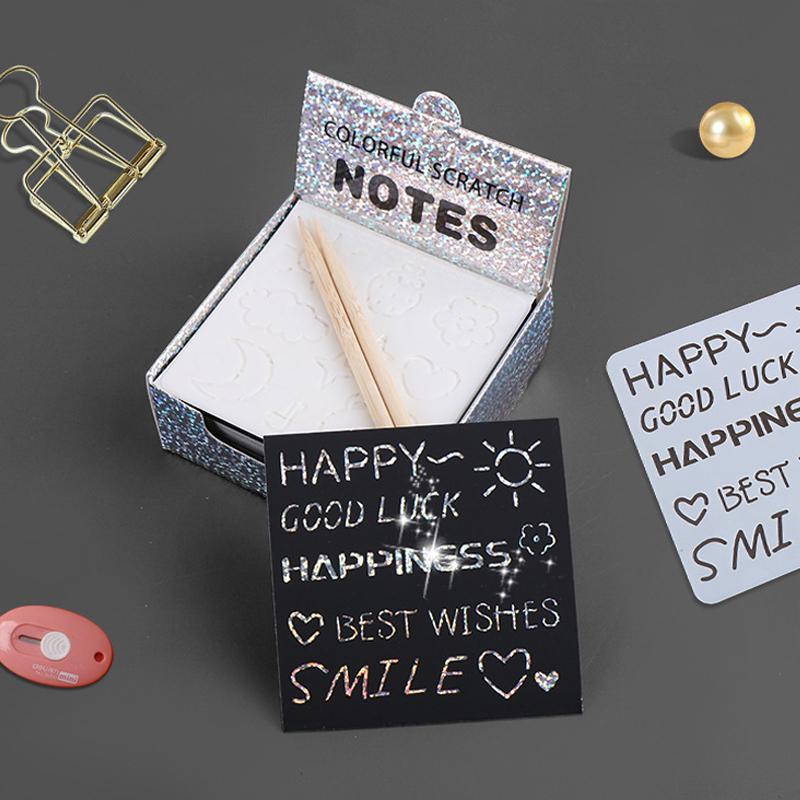 COLORFUL SCRATCH
NOTES
HAPPY~
GOOD LUCK
HAPPINESS
BEST WISHES
SMILE
HAPPY~
GOOD LUCK
HAPPINE
BEST
SMI
mini